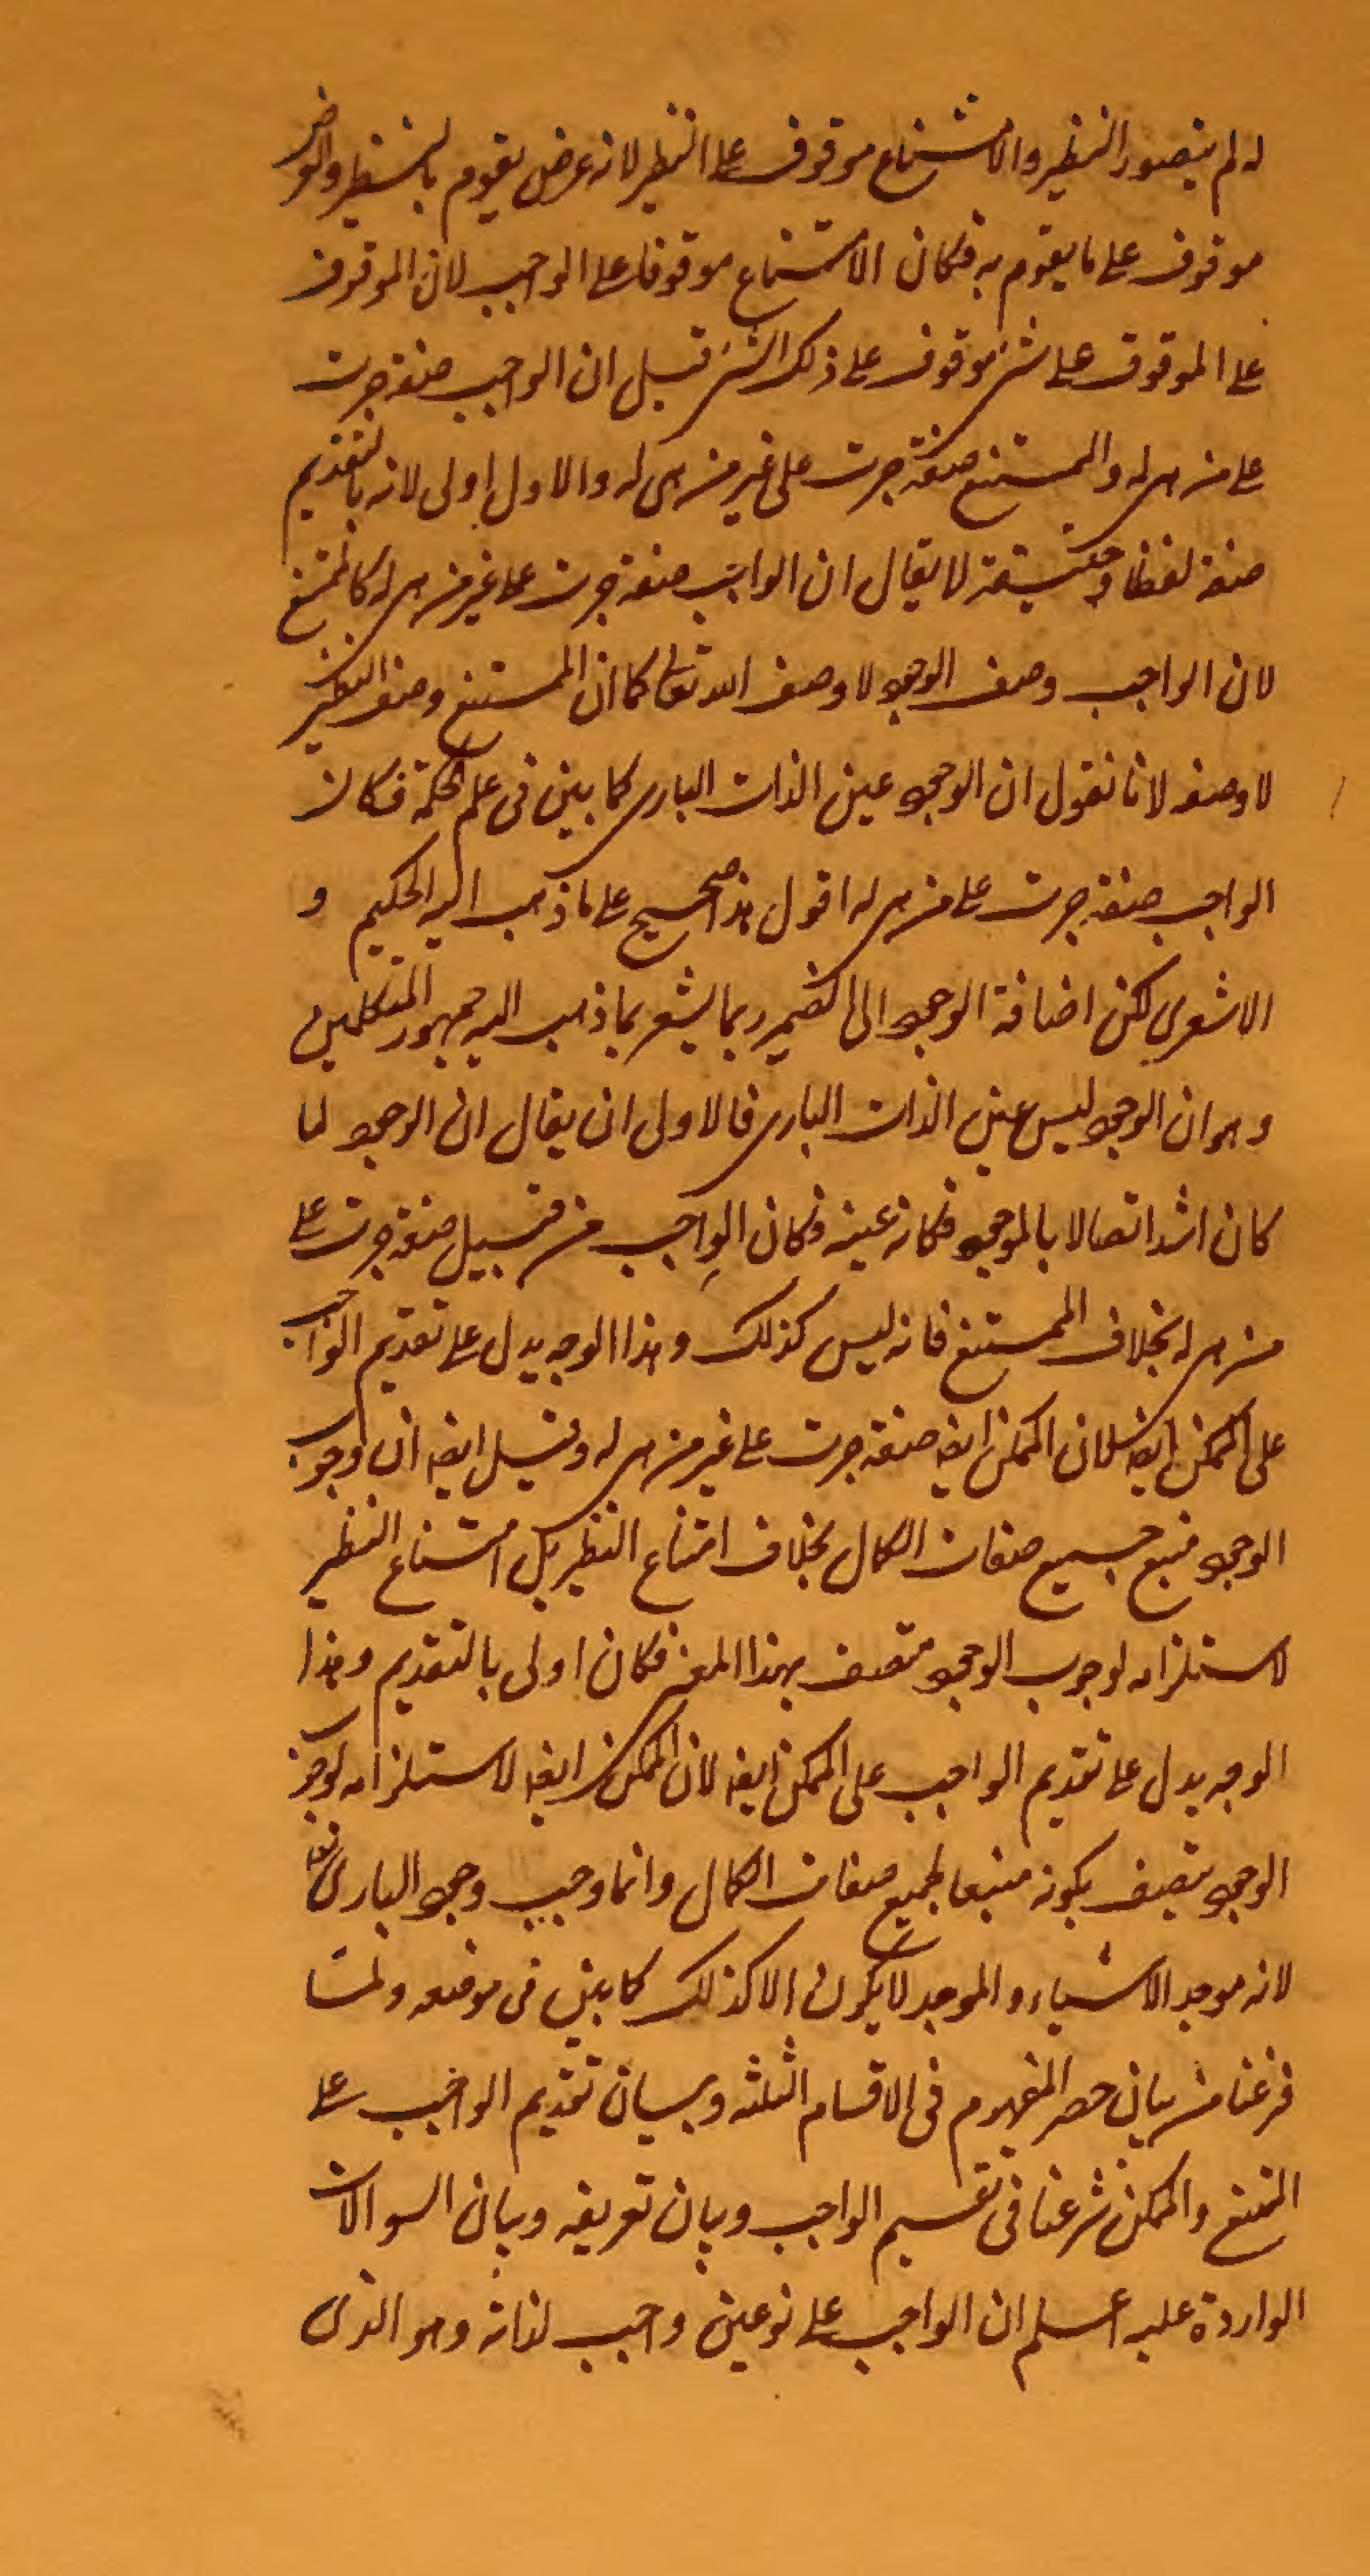 له لم يتصور النظير والامتناع موقوف على النظير لانه عرض يقوم بالنظير والعرض
موقوف على ما يقوم به فكان الامتناع موقوفا على الواجب لان الموقوف
على الموقوف على شئ موقوف على ذلك الشئ قيل ان الواجب صفة جرت
على من هى له والممتنع صفة جرت على غير من هى له والاول اولى لانه بالتقديم
صفة لفظا وحقيقة لا يقال ان الواجب صفة جرت على غير من هى له كالممتنع
لان الواجب وصف الوجود لا وصف الله تعالى كما ان الممتنع وصف النظير
لا وصفه لانا نقول ان الوجود عين الذات البارى كما بين فى علم الحكمة فكان
الواجب صفة جرت على من هى له اقول هذا صحيح على ما ذهب اليه الحكيم و
الاشعرى لكن اضافة الوجود الى الضمير ربما يشعر بما ذهب اليه جمهور المتكلمين
وهو ان الوجود ليس عين الذات البارى فالاولى ان يقال ان الوجود لما
كان اشد اتصالا بالموجود فكانه عينه فكان الواجب من قبيل صفة جرت على
من هى له بخلاف الممتنع فانه ليس كذلك وهذا الوجه يدل على تقديم الواجب
على الممكن ايضا لان الممكن ايضا صفة جرت على غير من هى له وقيل ايضا ان وجوب
الوجود منبع جميع صفات الكمال بخلاف امتناع النظير بل امتناع النظير
لاستلزامه لوجوب الوجود متصف بهذا المعنى فكان اولى بالتقديم وهذا
الوجه يدل على تقديم الواجب على الممكن ايضا لان الممكن ايضا لاستلزامه لوجوب
الوجود متصف بكونه منبعا لجميع صفات الكمال وانما وجب وجود البارى تعالى
لانه موجد الاشياء والموجد لا يكون الا كذلك كما بين فى موضعه ولما
فرغنا من بيان حصر المفهوم فى الاقسام الثلثه وبيان تقديم الواجب على
الممتنع والممكن شرعنا فى تقسيم الواجب وبيان تعريفه وبيان السوالات
الواردة عليه اعلم ان الواجب على نوعين واجب لذاته وهو الذى